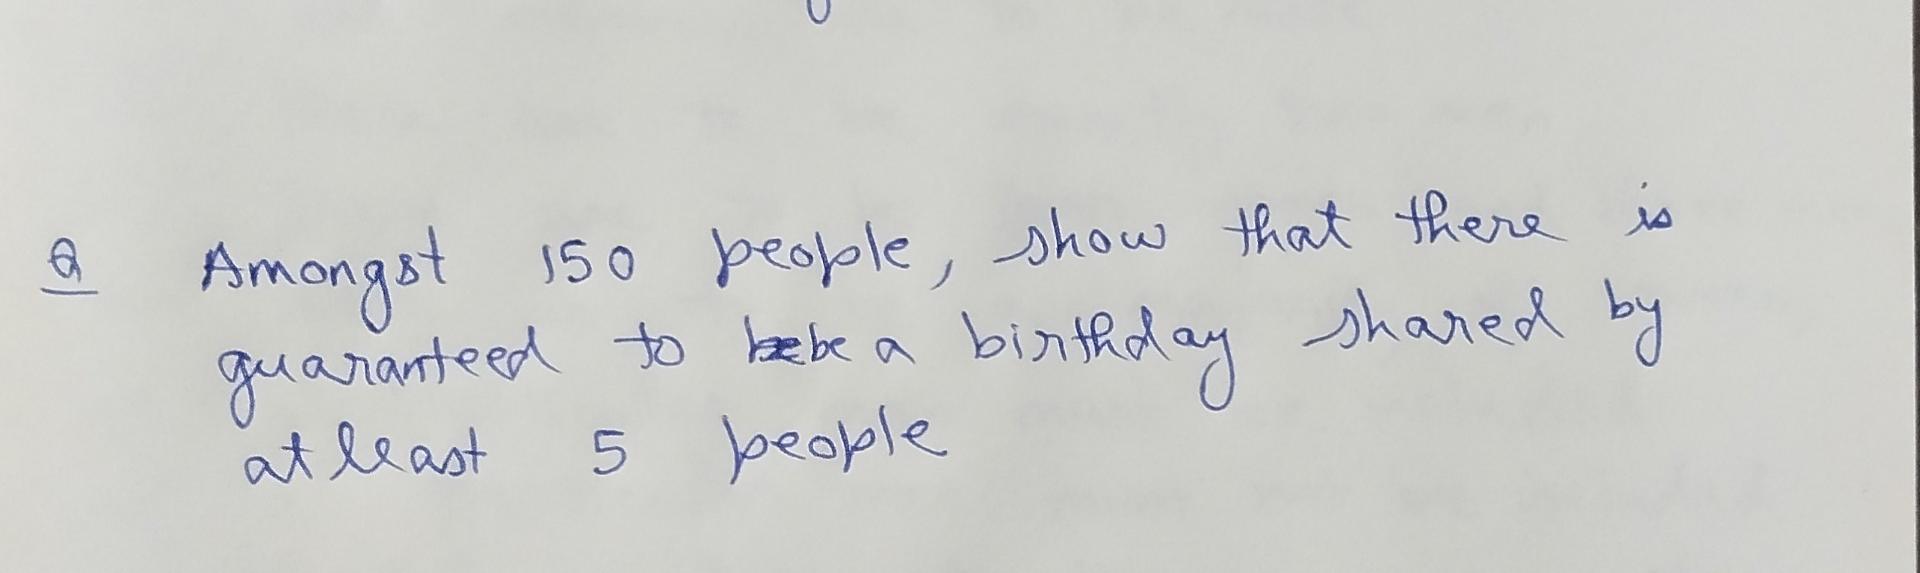 Q Amongst 150 people, show that there is
guaranteed to be a birthday shared by
at least 5 people